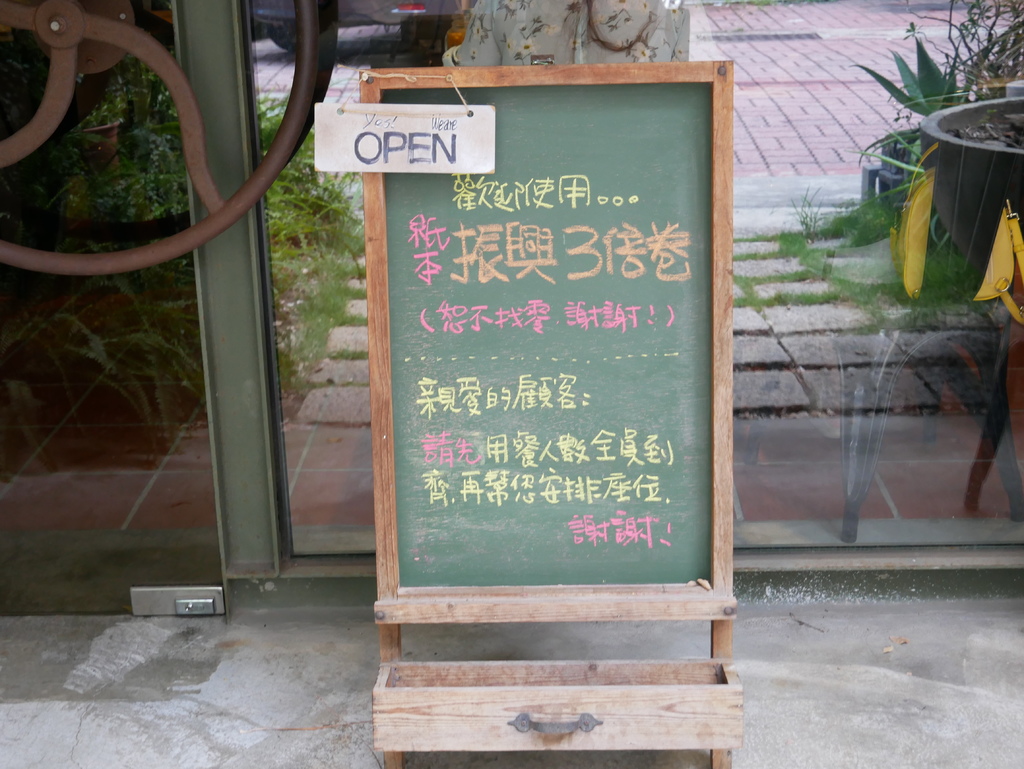 Yes! We are
OPEN
歡迎使用...
紙本 振興3倍卷
(恕不找零.謝謝!)
親愛的顧客:
請先用餐人數全員到
齊.再幫您安排座位.
謝謝!